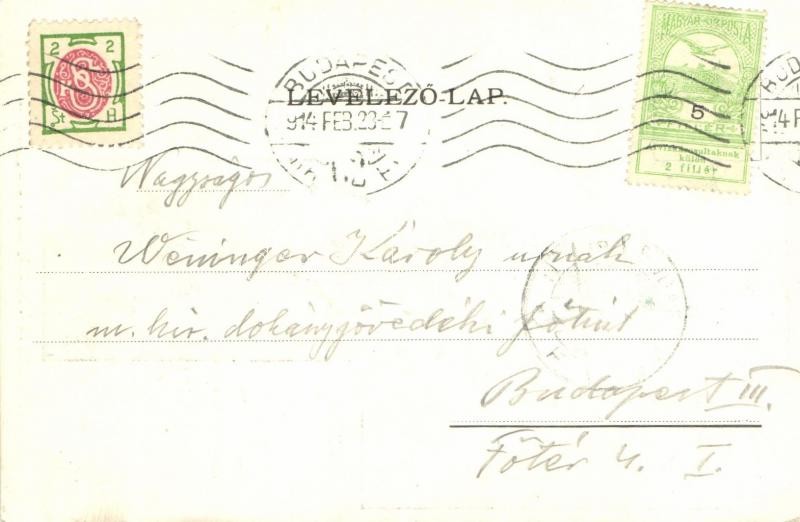 2 2
8
St H
MAGYAR KIR. POSTA
5
Árvízkárosultaknak
külön
2 fillér
BUDAPEST
LEVELEZŐ-LAP.
914 FEB. 28
Nagyságos
Weninger Károly urnak
m. kir. dohányjövedéki
Budapest III.
Főtér 4. I.